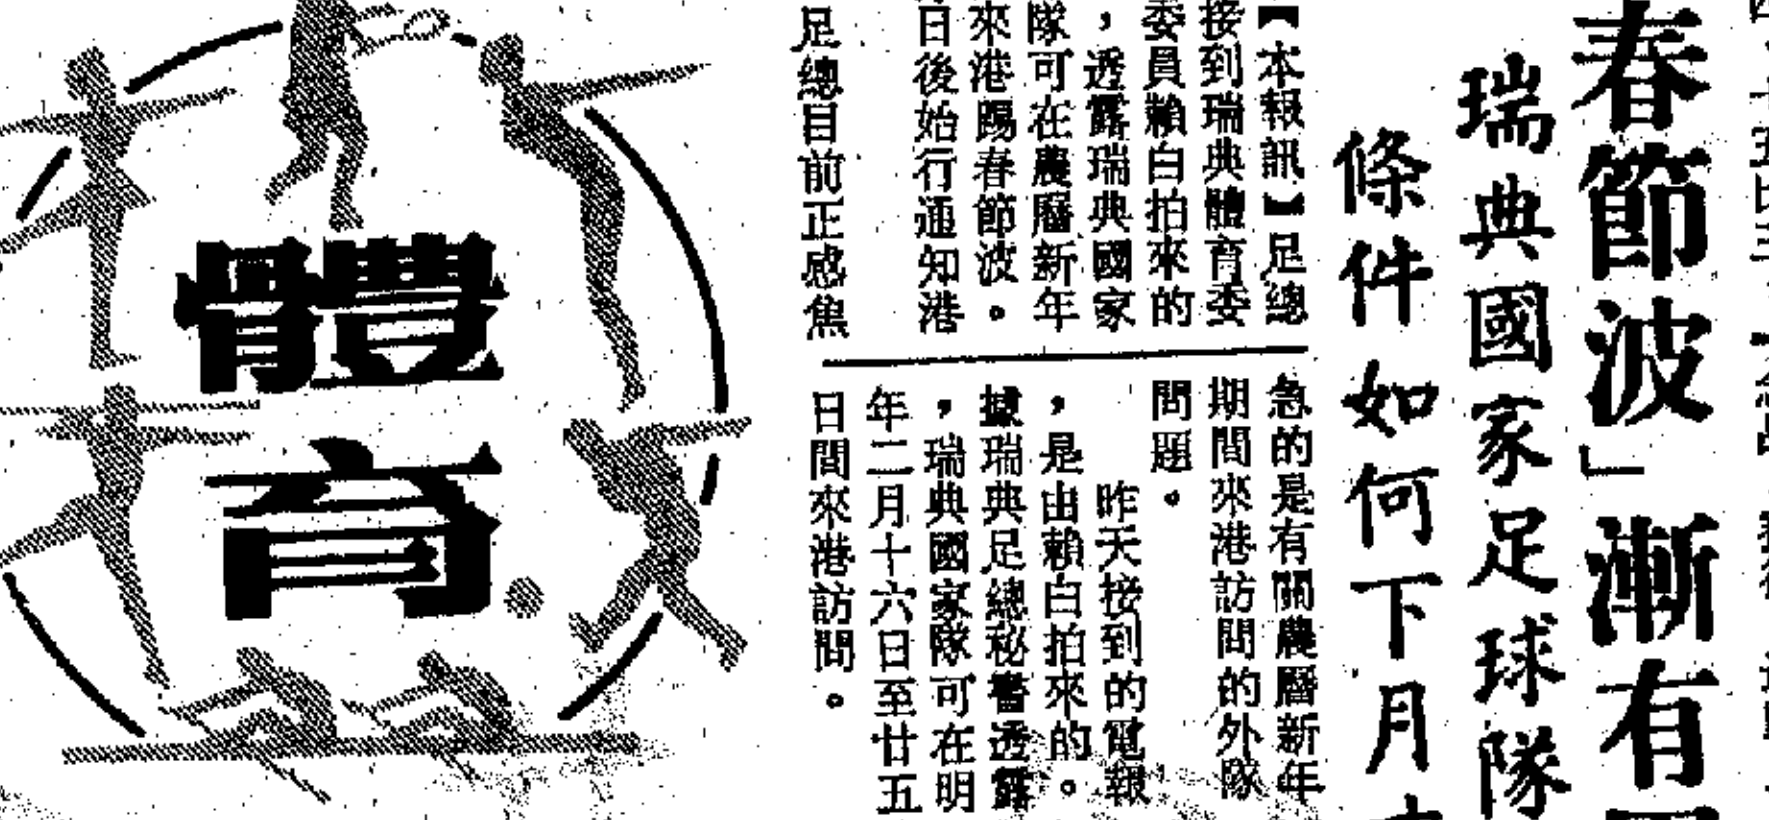 春節波」漸有
瑞典國家足球隊
條件如何下月
【本報訊】足總
接到瑞典體育委
委員賴白拍來的
，透露瑞典國家
隊可在農曆新年
來港踢春節波。
日後始行通知港
足總目前正感焦
急的是有關農曆新年
期間來港訪問的外隊
問題。
昨天接到的電報
，是由賴白拍來的。
據瑞典足總秘書透露
，瑞典國家隊可在明
年二月十六日至廿五
日間來港訪問。
體育